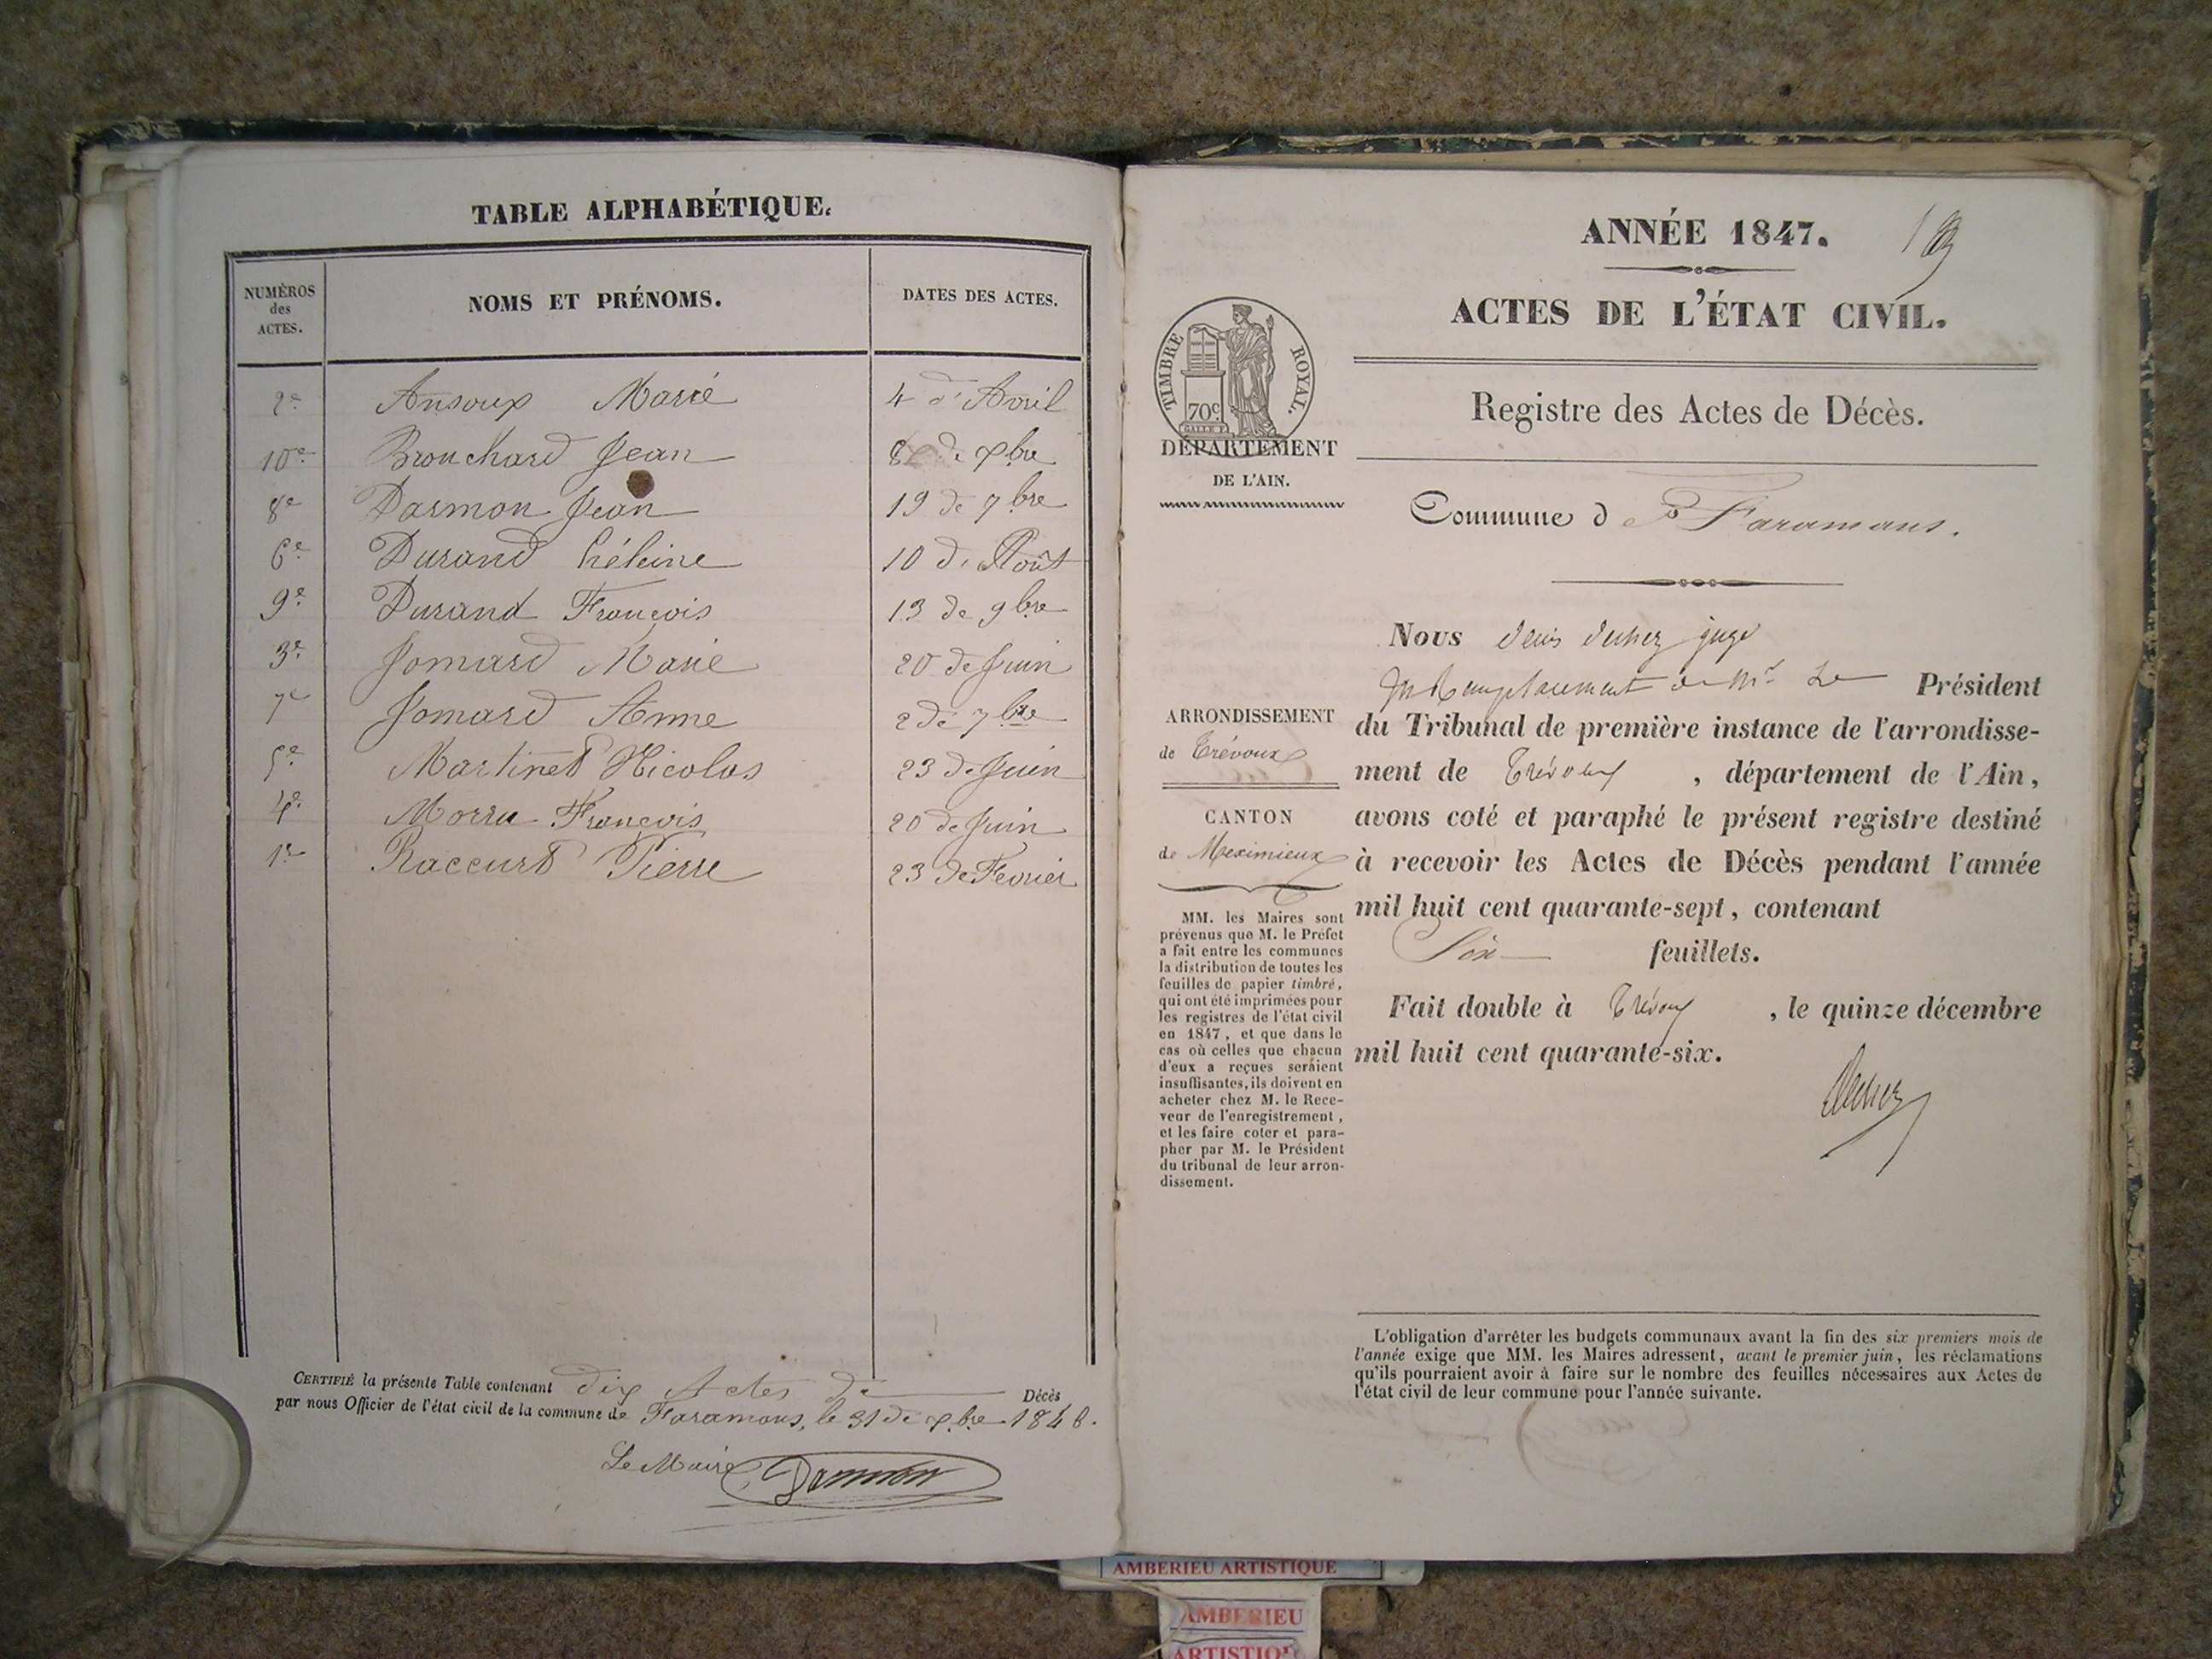 TABLE ALPHABÉTIQUE.
NUMÉROS des ACTES.
NOMS ET PRÉNOMS.
DATES DES ACTES.
2e Ansoux Marie 4 d'Avril
10e Brouchard Jean 8 de Xbre
8e Darmon Jean 19 de 7bre
6e Durand 10 d'Août
9e Durand François 13 de 9bre
3e Jomard Marie 20 de Juin
7e Jomard Anne 2 de 7bre
5e Martinet Nicolas 23 de Juin
4e Morra François 20 de Juin
1er Raccurt Pierre 23 de Fevrier
CERTIFIÉ la présente Table contenant dix Actes de Décès
par nous Officier de l'état civil de la commune de Faramans, le 31 de Xbre 1846.
Le Maire
Darmon
ANNÉE 1847.
ACTES DE L'ÉTAT CIVIL.
TIMBRE ROYAL.
70c
DÉPARTEMENT
DE L'AIN.
Registre des Actes de Décès.
Commune de Faramans.
Nous Denis juge
En Remplacement de Mr Le Président
du Tribunal de première instance de l'arrondisse-
ment de Trévoux, département de l'Ain,
avons coté et paraphé le présent registre destiné
à recevoir les Actes de Décès pendant l'année
mil huit cent quarante-sept, contenant
Six feuillets.
Fait double à Trévoux, le quinze décembre
mil huit cent quarante-six.
ARRONDISSEMENT
de Trévoux
CANTON
de Meximieux
MM. les Maires sont
prévenus que M. le Préfet
a fait entre les communes
la distribution de toutes les
feuilles de papier timbré,
qui ont été imprimées pour
les registres de l'état civil
en 1847, et que dans le
cas où celles que chacun
d'eux a reçues seraient
insuffisantes, ils doivent en
acheter chez M. le Rece-
veur de l'enregistrement,
et les faire coter et para-
pher par M. le Président
du tribunal de leur arron-
dissement.
L'obligation d'arrêter les budgets communaux avant la fin des six premiers mois de
l'année exige que MM. les Maires adressent, avant le premier juin, les réclamations
qu'ils pourraient avoir à faire sur le nombre des feuilles nécessaires aux Actes de
l'état civil de leur commune pour l'année suivante.
AMBERIEU ARTISTIQUE
AMBERIEU
ARTISTIQ